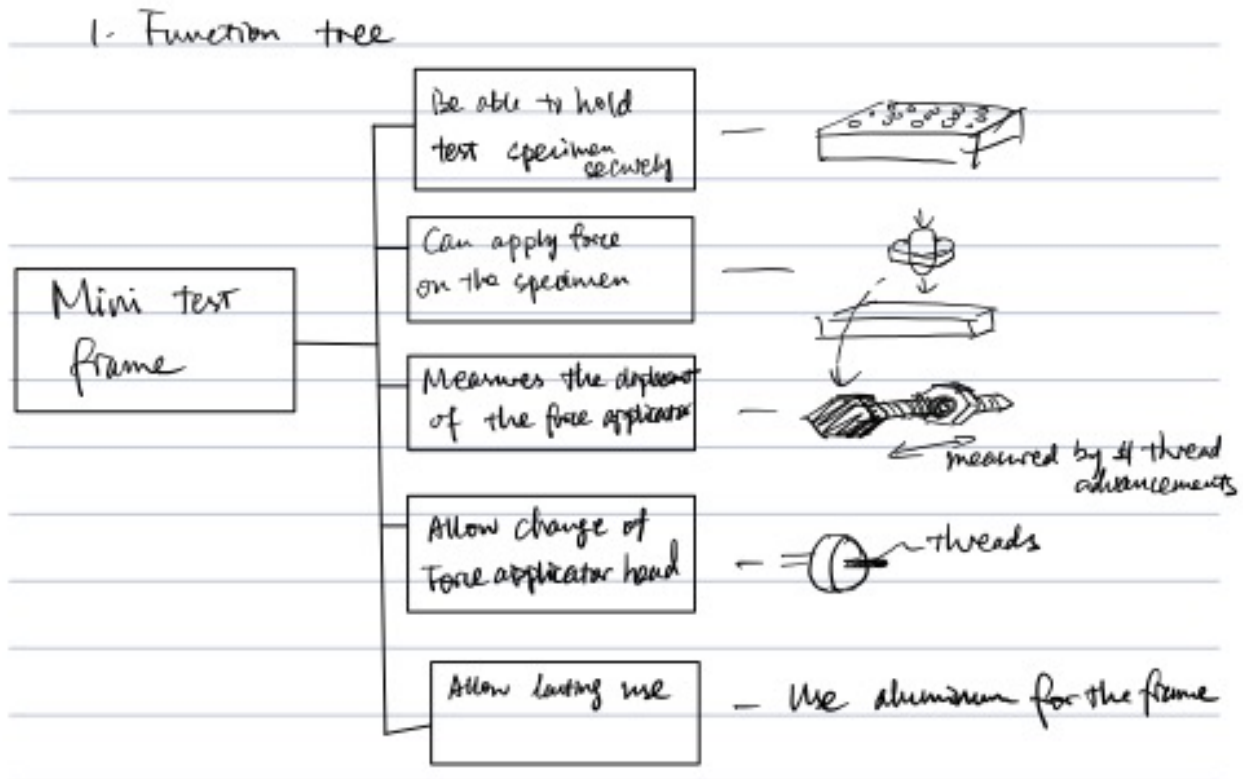 1. Function tree
Be able to hold
test specimen
securely
Can apply force
on the specimen
Mini test
frame
Measures the
of the force applicator
measured by # thread
advancements
Allow change of
Force applicator head
threads
Allow lasting use
Use aluminum for the frame